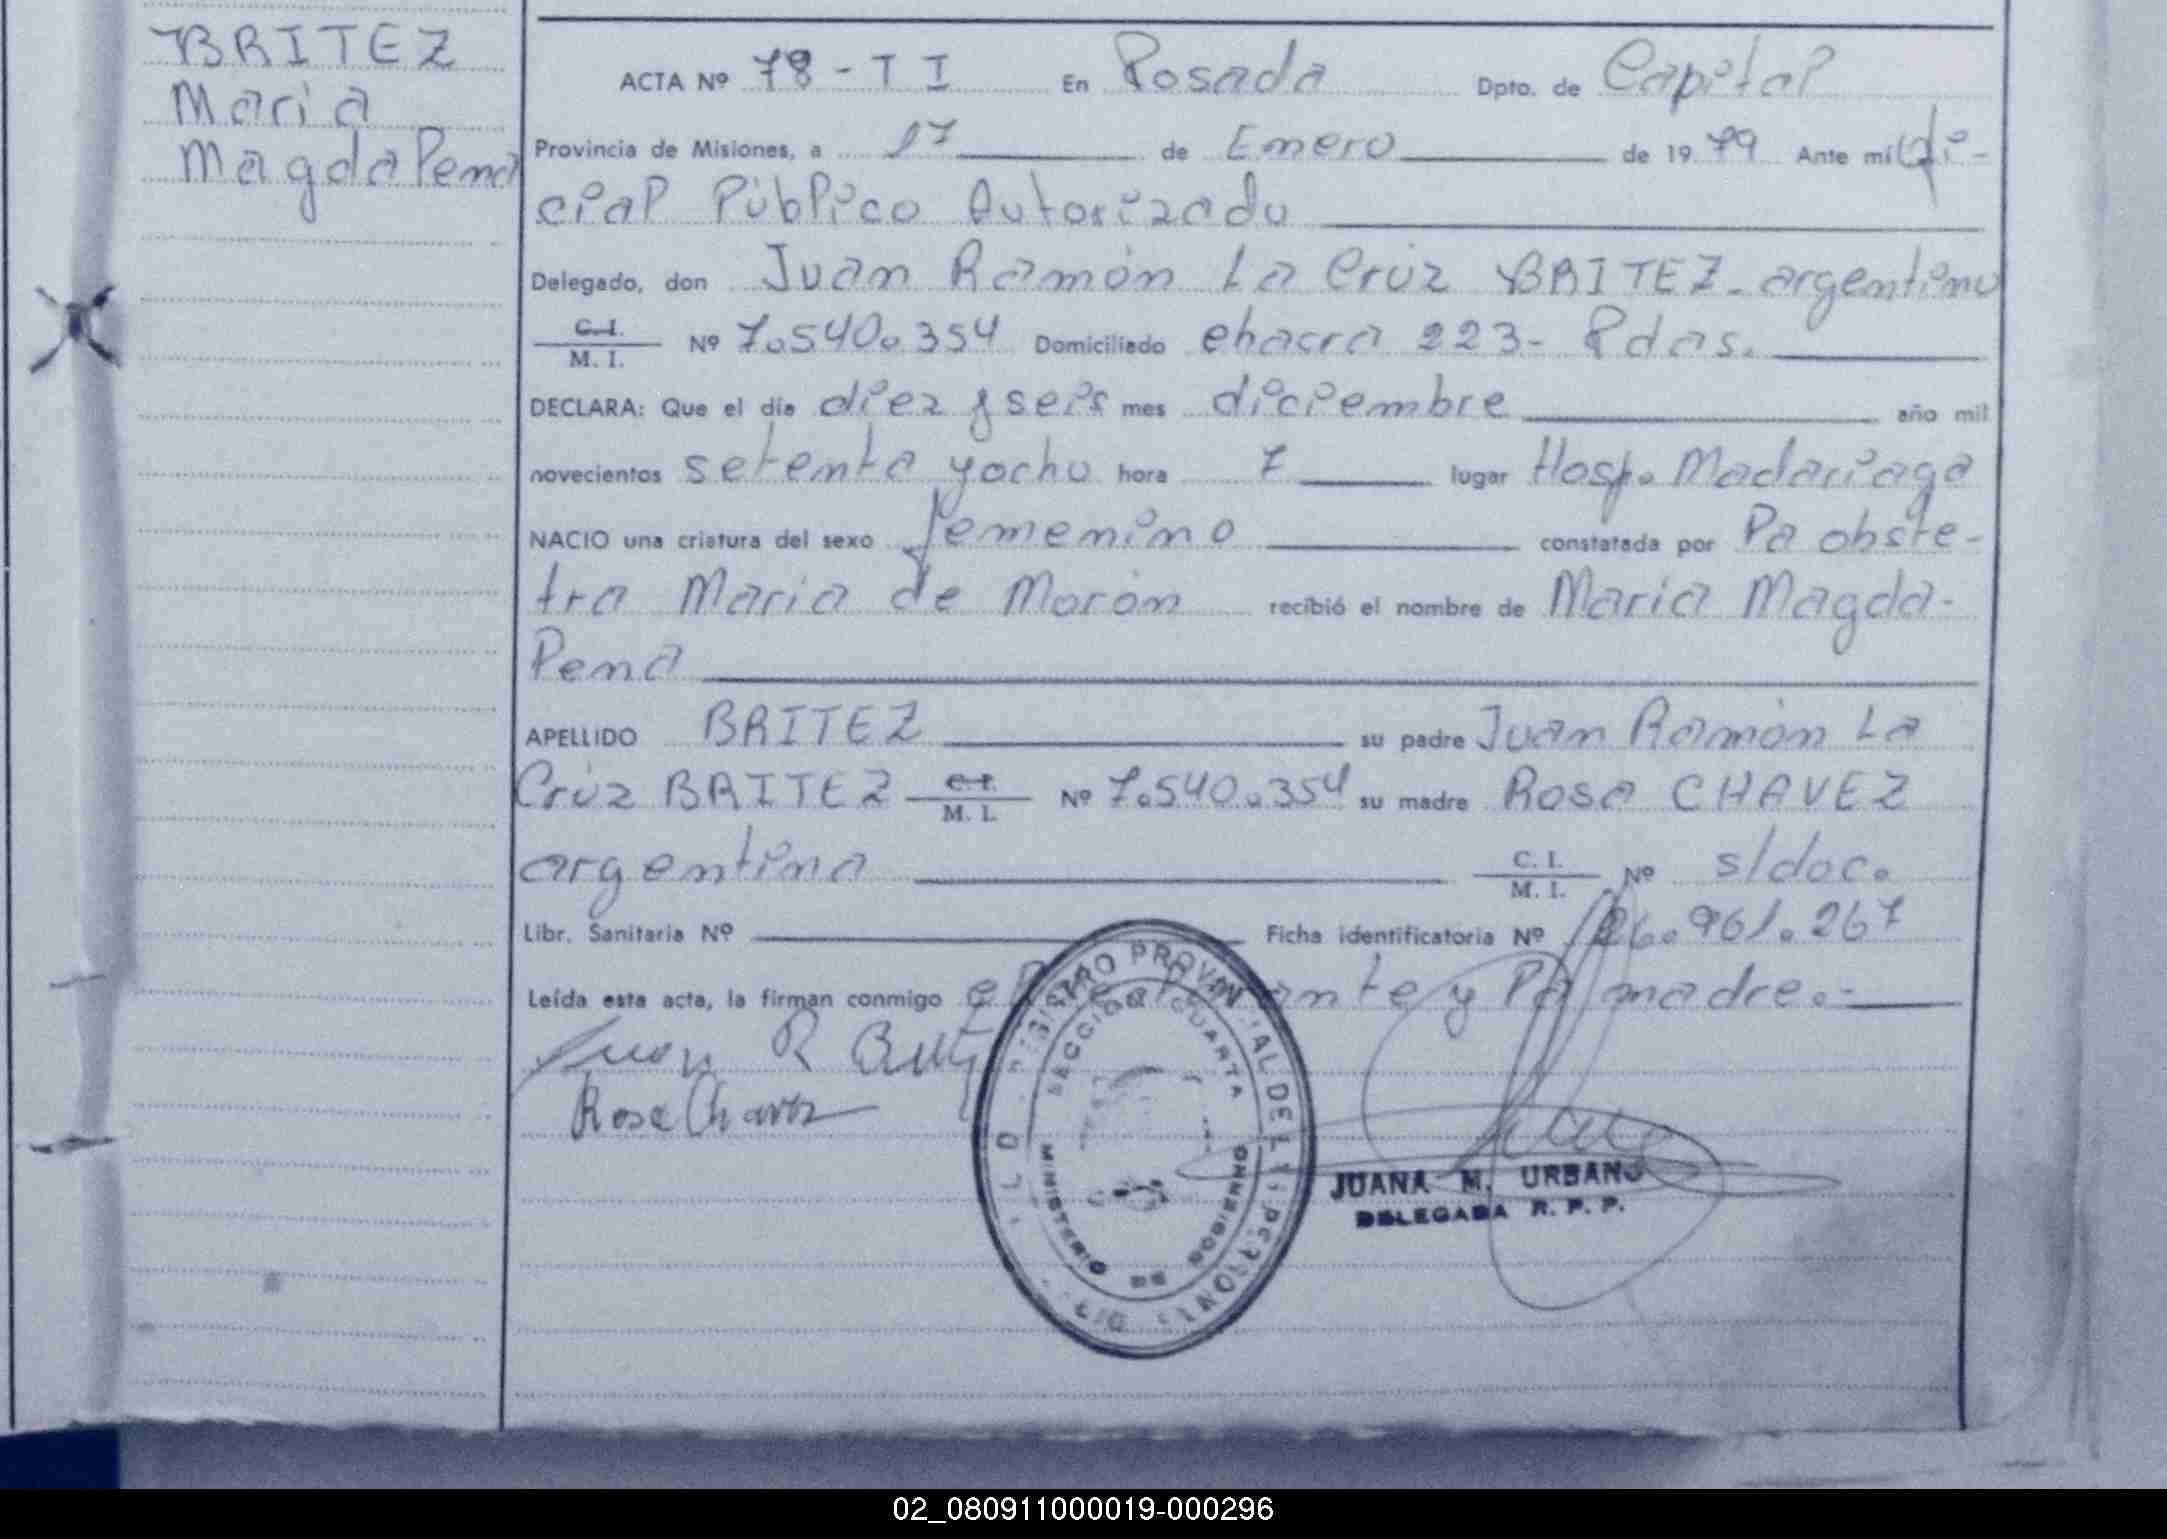 BRITEZ
Maria
Magdalena
ACTA Nº 78 - T I En Posada Dpto. de Capital
Provincia de Misiones, a 17 de Enero de 1979 Ante mi Ofi-
cial Público Autorizado
Delegado, don Juan Ramón La Crúz BRITEZ - argentino
C.I. / M. I. Nº 7.540.354 Domiciliado chacra 223 - Pdas.
DECLARA: Que el día diez y seis mes diciembre año mil
novecientos setenta y ocho hora 7 lugar Hosp. Madariaga
NACIO una criatura del sexo femenino constatada por la obste-
tra Maria de Morón recibió el nombre de Maria Magda-
lena
APELLIDO BRITEZ su padre Juan Ramón La
Crúz BRITEZ C.I. / M. I. Nº 7.540.354 su madre Rosa CHAVEZ
argentina C. I. / M. I. Nº s/doc.
Libr. Sanitaria Nº Ficha identificatoria Nº 26.961.267
Leída esta acta, la firman conmigo y la madre.-
Juan R
Rosa Chavez
REGISTRO PROVINCIAL DE LAS PERSONAS
SECCION CUARTA
MINISTERIO DE GOBIERNO
JUANA M. URBANO
DELEGADA R. P. P.
02_080911000019-000296